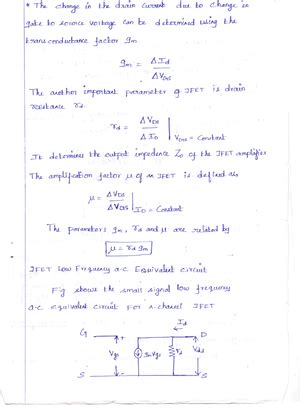 * The change in the drain current due to change in
gate to source voltage can be determined using the
transconductance factor gm
gm = ΔId / ΔVGS
The another important parameter of JFET is drain
resistance rd.
rd = ΔVDS / ΔID | VGS = Constant
It determines the output impedence Zo of the JFET amplifier
The amplification factor μ of an JFET is defined as
μ = ΔVDS / ΔVGS | ID = Constant
The parameters gm, rd and μ are related by
μ = rd gm
JFET Low Frequency a.c Equivalent circuit
Fig shows the small signal low frequency
a.c equivalent circuit for n-channel JFET
Id
G + D
Vgs gmVgs rd Vds
S - S